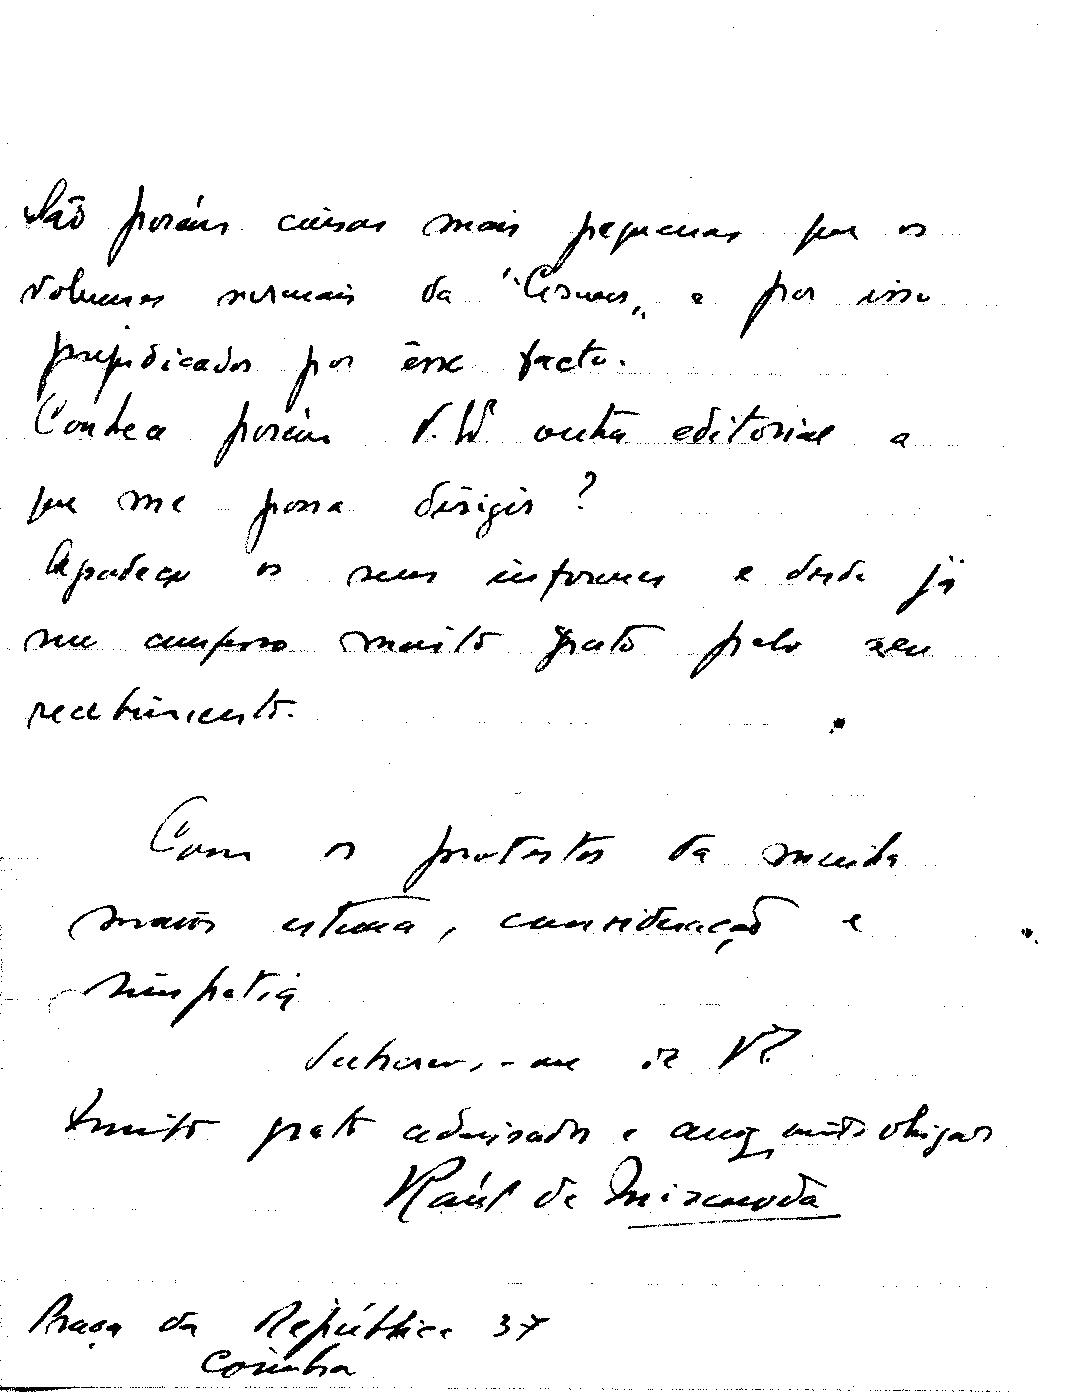 São porém coisas mais pequenas que os
volumes normais da "Cosmos„ e por isso
prejudicados por êsse facto.
Conhece porém V. outra editorial a
que me possa dirigir?
Agradeço os seus informes e desde já
me confesso muito grato pelo seu
recebimento.
Com os protestos da minha
maior estima, consideração e
simpatia
Subscrevo-me de V.
muito grato admirador e amº muito obrigado
Raúl de Miranda
Praça da República 37
Coimbra